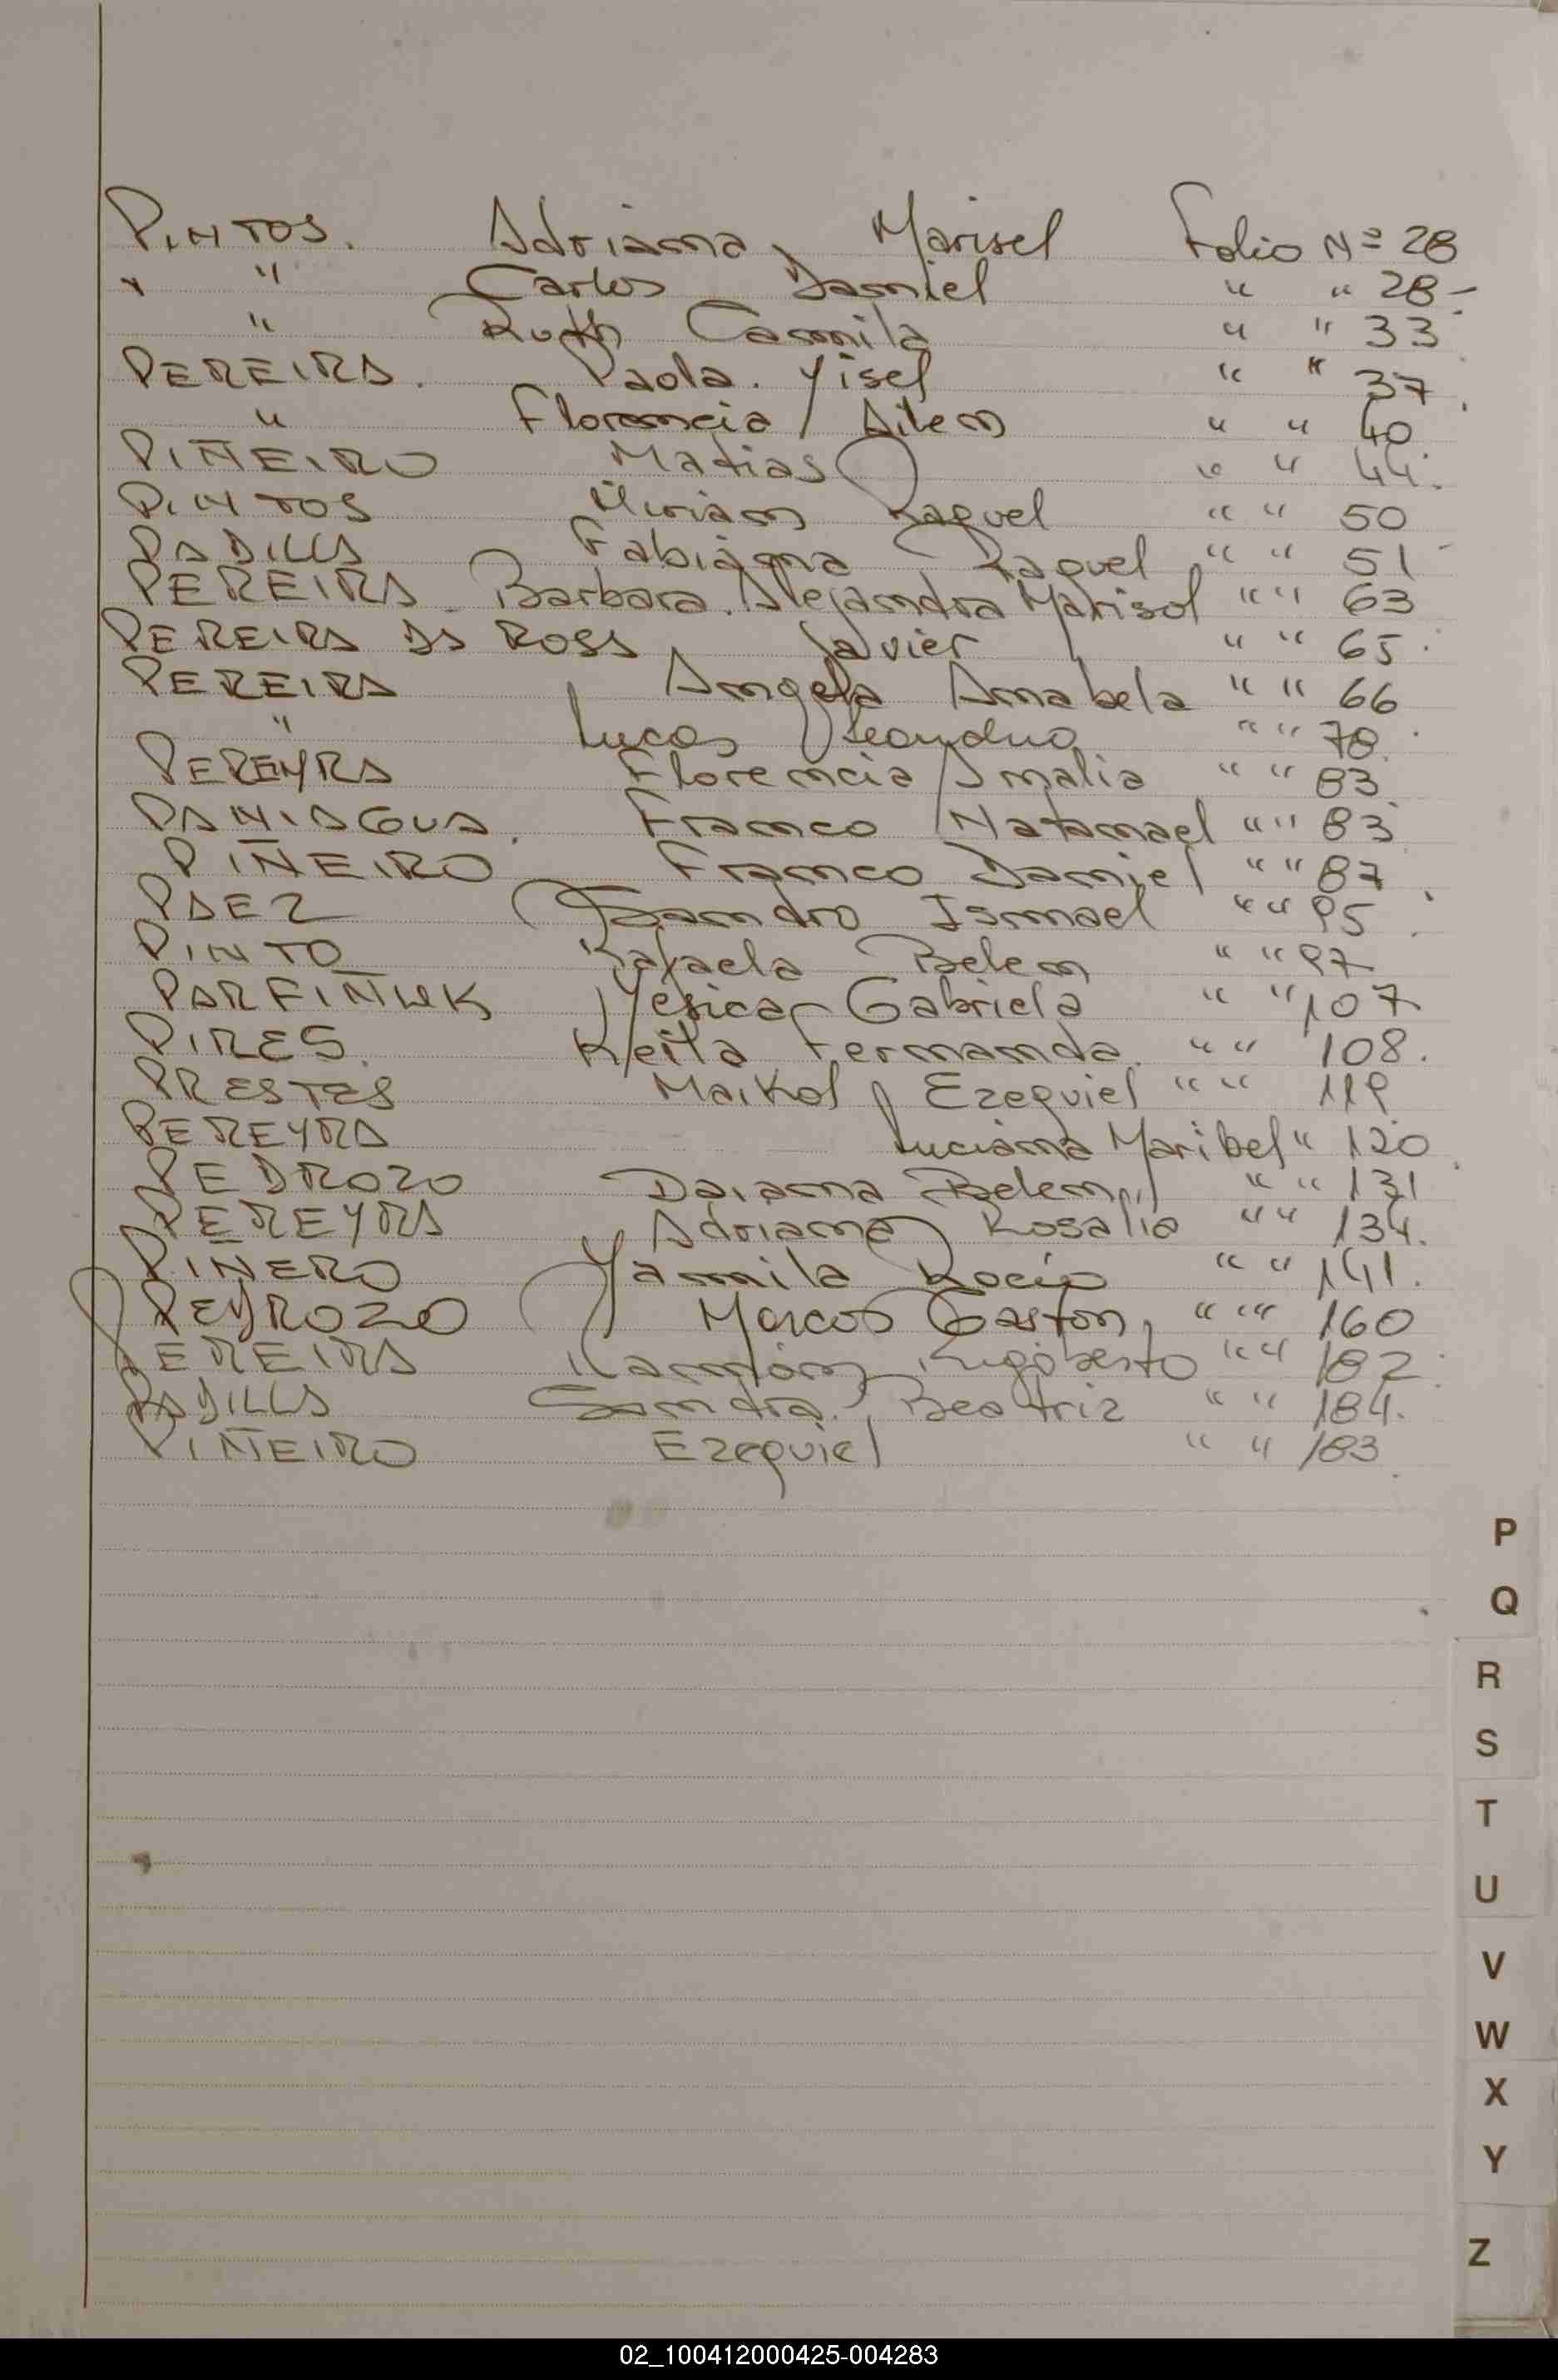 PINTOS. Adriana Marisel Folio Nº 28
" " Carlos Daniel " " 28-
" Ruth Camila " " 33
PEREIRA. Paola. Yisel " " 37
" Florencia Ailen " " 40
PIÑEIRO Matias " " 44.
PINTOS Miriam Raquel " " 50
PADILLA Fabiana Raquel " " 51
PEREIRA Barbara. Alejandra Marisol " " 63
PEREIRA DA ROSA Javier " " 65
PEREIRA Angela Anabela " " 66
" Lucas Leandro " " 78
PEREYRA Florencia Amalia " " 83
PANIAGUA. Franco Natanael " " 83
PIÑEIRO Franco Daniel " " 87
PAEZ Sandro Ismael " " 95
PINTO Rafaela Belen " " 97
PARFIÑUK Yesica Gabriela " " 107
PIRES. Keila Fernanda. " " 108.
PRESTES Maikol Ezequiel " " 119
PEREYRA Luciana Maribel " 120
PEDROZO Daiana Belen " " 131
PEREYRA Adriana Rosalia " " 134.
PIÑERO Yamila Rocio " " 141.
PEDROZO Marcos Gaston " " 160
PEREIRA Ramón Rigoberto " " 182
PADILLA Sandra. Beatriz " " 184.
PIÑEIRO Ezequiel " " 183
P
Q
R
S
T
U
V
W
X
Y
Z
02_100412000425-004283